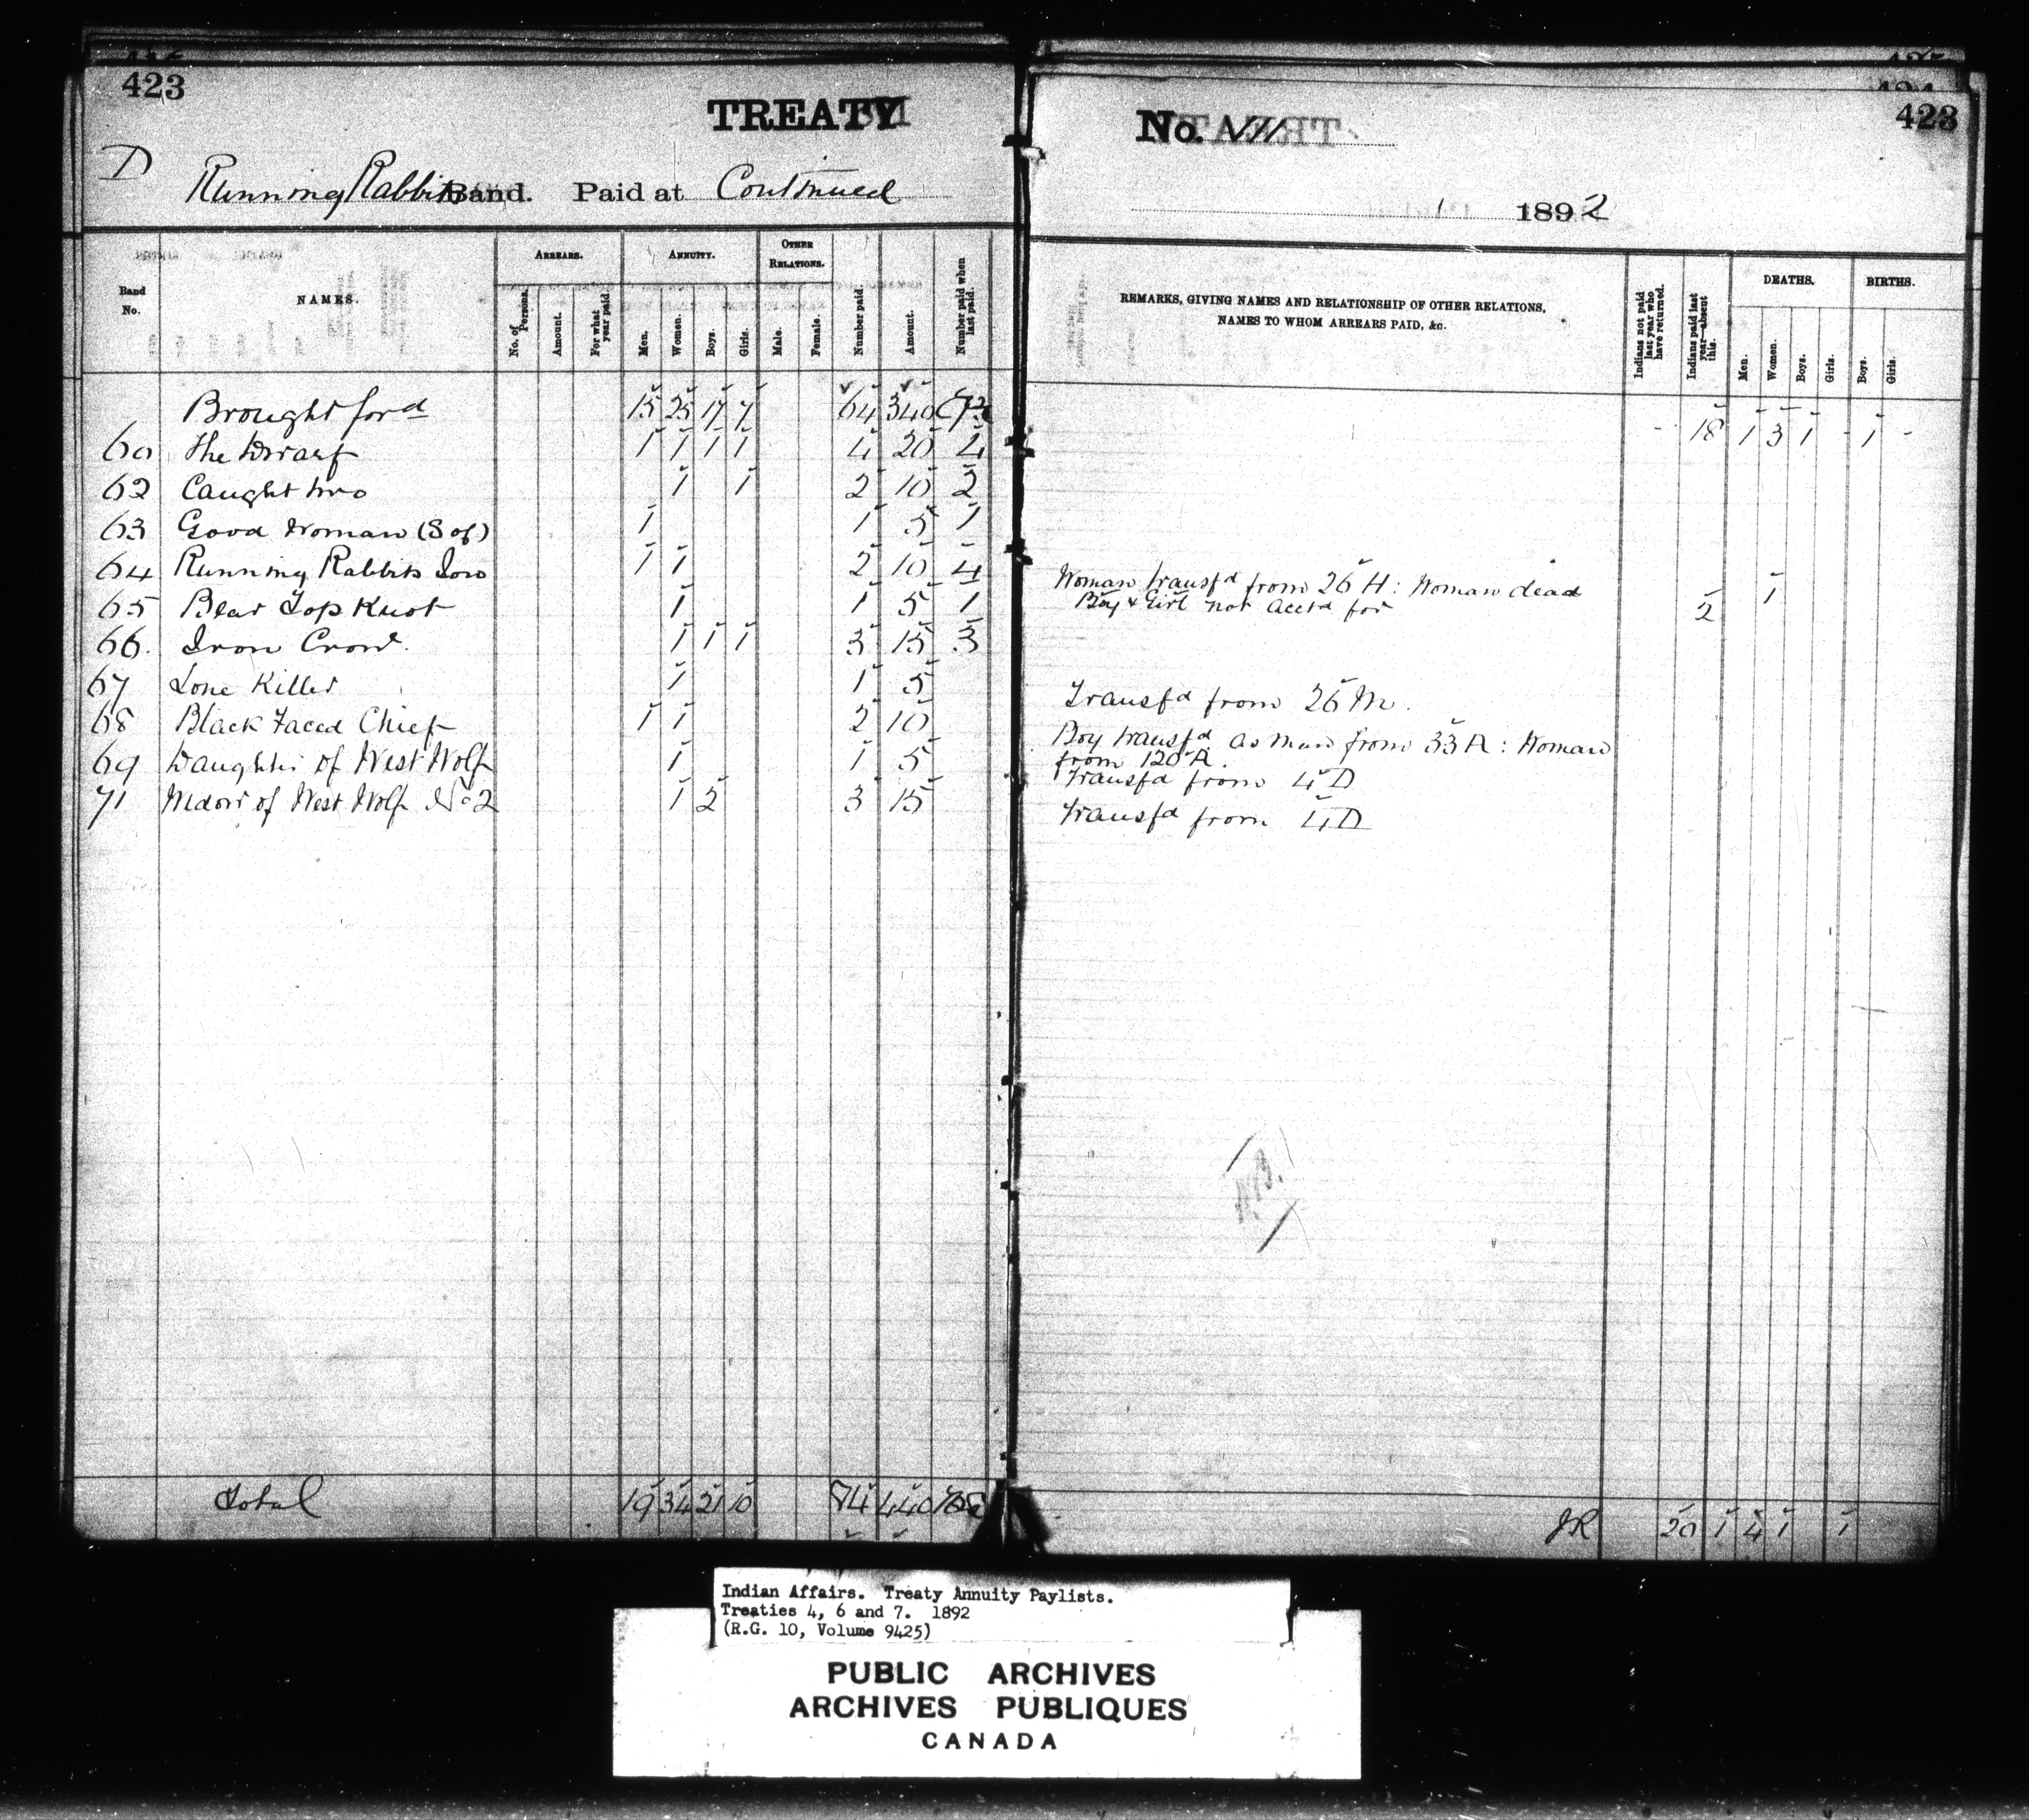 423
TREATY
D Running Rabbits Band. Paid at Continued
Band No.
NAMES.
ARREARS.
No. of Persons.
Amount.
For what year paid.
ANNUITY.
Men.
Women.
Boys.
Girls.
OTHER RELATIONS.
Male.
Female.
Number paid.
Amount.
Number paid when last paid.
Brought ford 15 25 17 7 64 340
60 The Dwarf 1 1 1 1 4 20 4
62 Caught two 1 1 2 10 2
63 Good Woman (S of) 1 1 5 1
64 Running Rabbits Son 1 1 2 10 4
65 Bear Top Knot 1 1 5 1
66. Iron Crow. 1 1 1 3 15 3
67 Lone Killer 1 1 5
68 Black Faced Chief 1 1 2 10
69 Daughter of West Wolf 1 1 5
71 Widow of West Wolf No 2 1 2 3 15
Total 19 34 21 10 84 440
No. VII
423
1892
REMARKS, GIVING NAMES AND RELATIONSHIP OF OTHER RELATIONS,
NAMES TO WHOM ARREARS PAID, &c.
Indians not paid last year who have returned.
Indians paid last year—absent this.
DEATHS.
Men.
Women.
Boys.
Girls.
BIRTHS.
Boys.
Girls.
- 18 1 3 1 - 1 -
Woman transfd from 26 H: Woman dead 1
Boy & Girl not acctd for 2
Transfd from 26 M.
Boy transfd as man from 33 A: Woman
from 120 A.
Transfd from 4 D
Transfd from 4 D
JR 20 1 4 1 1
Indian Affairs. Treaty Annuity Paylists.
Treaties 4, 6 and 7. 1892
(R.G. 10, Volume 9425)
PUBLIC ARCHIVES
ARCHIVES PUBLIQUES
CANADA